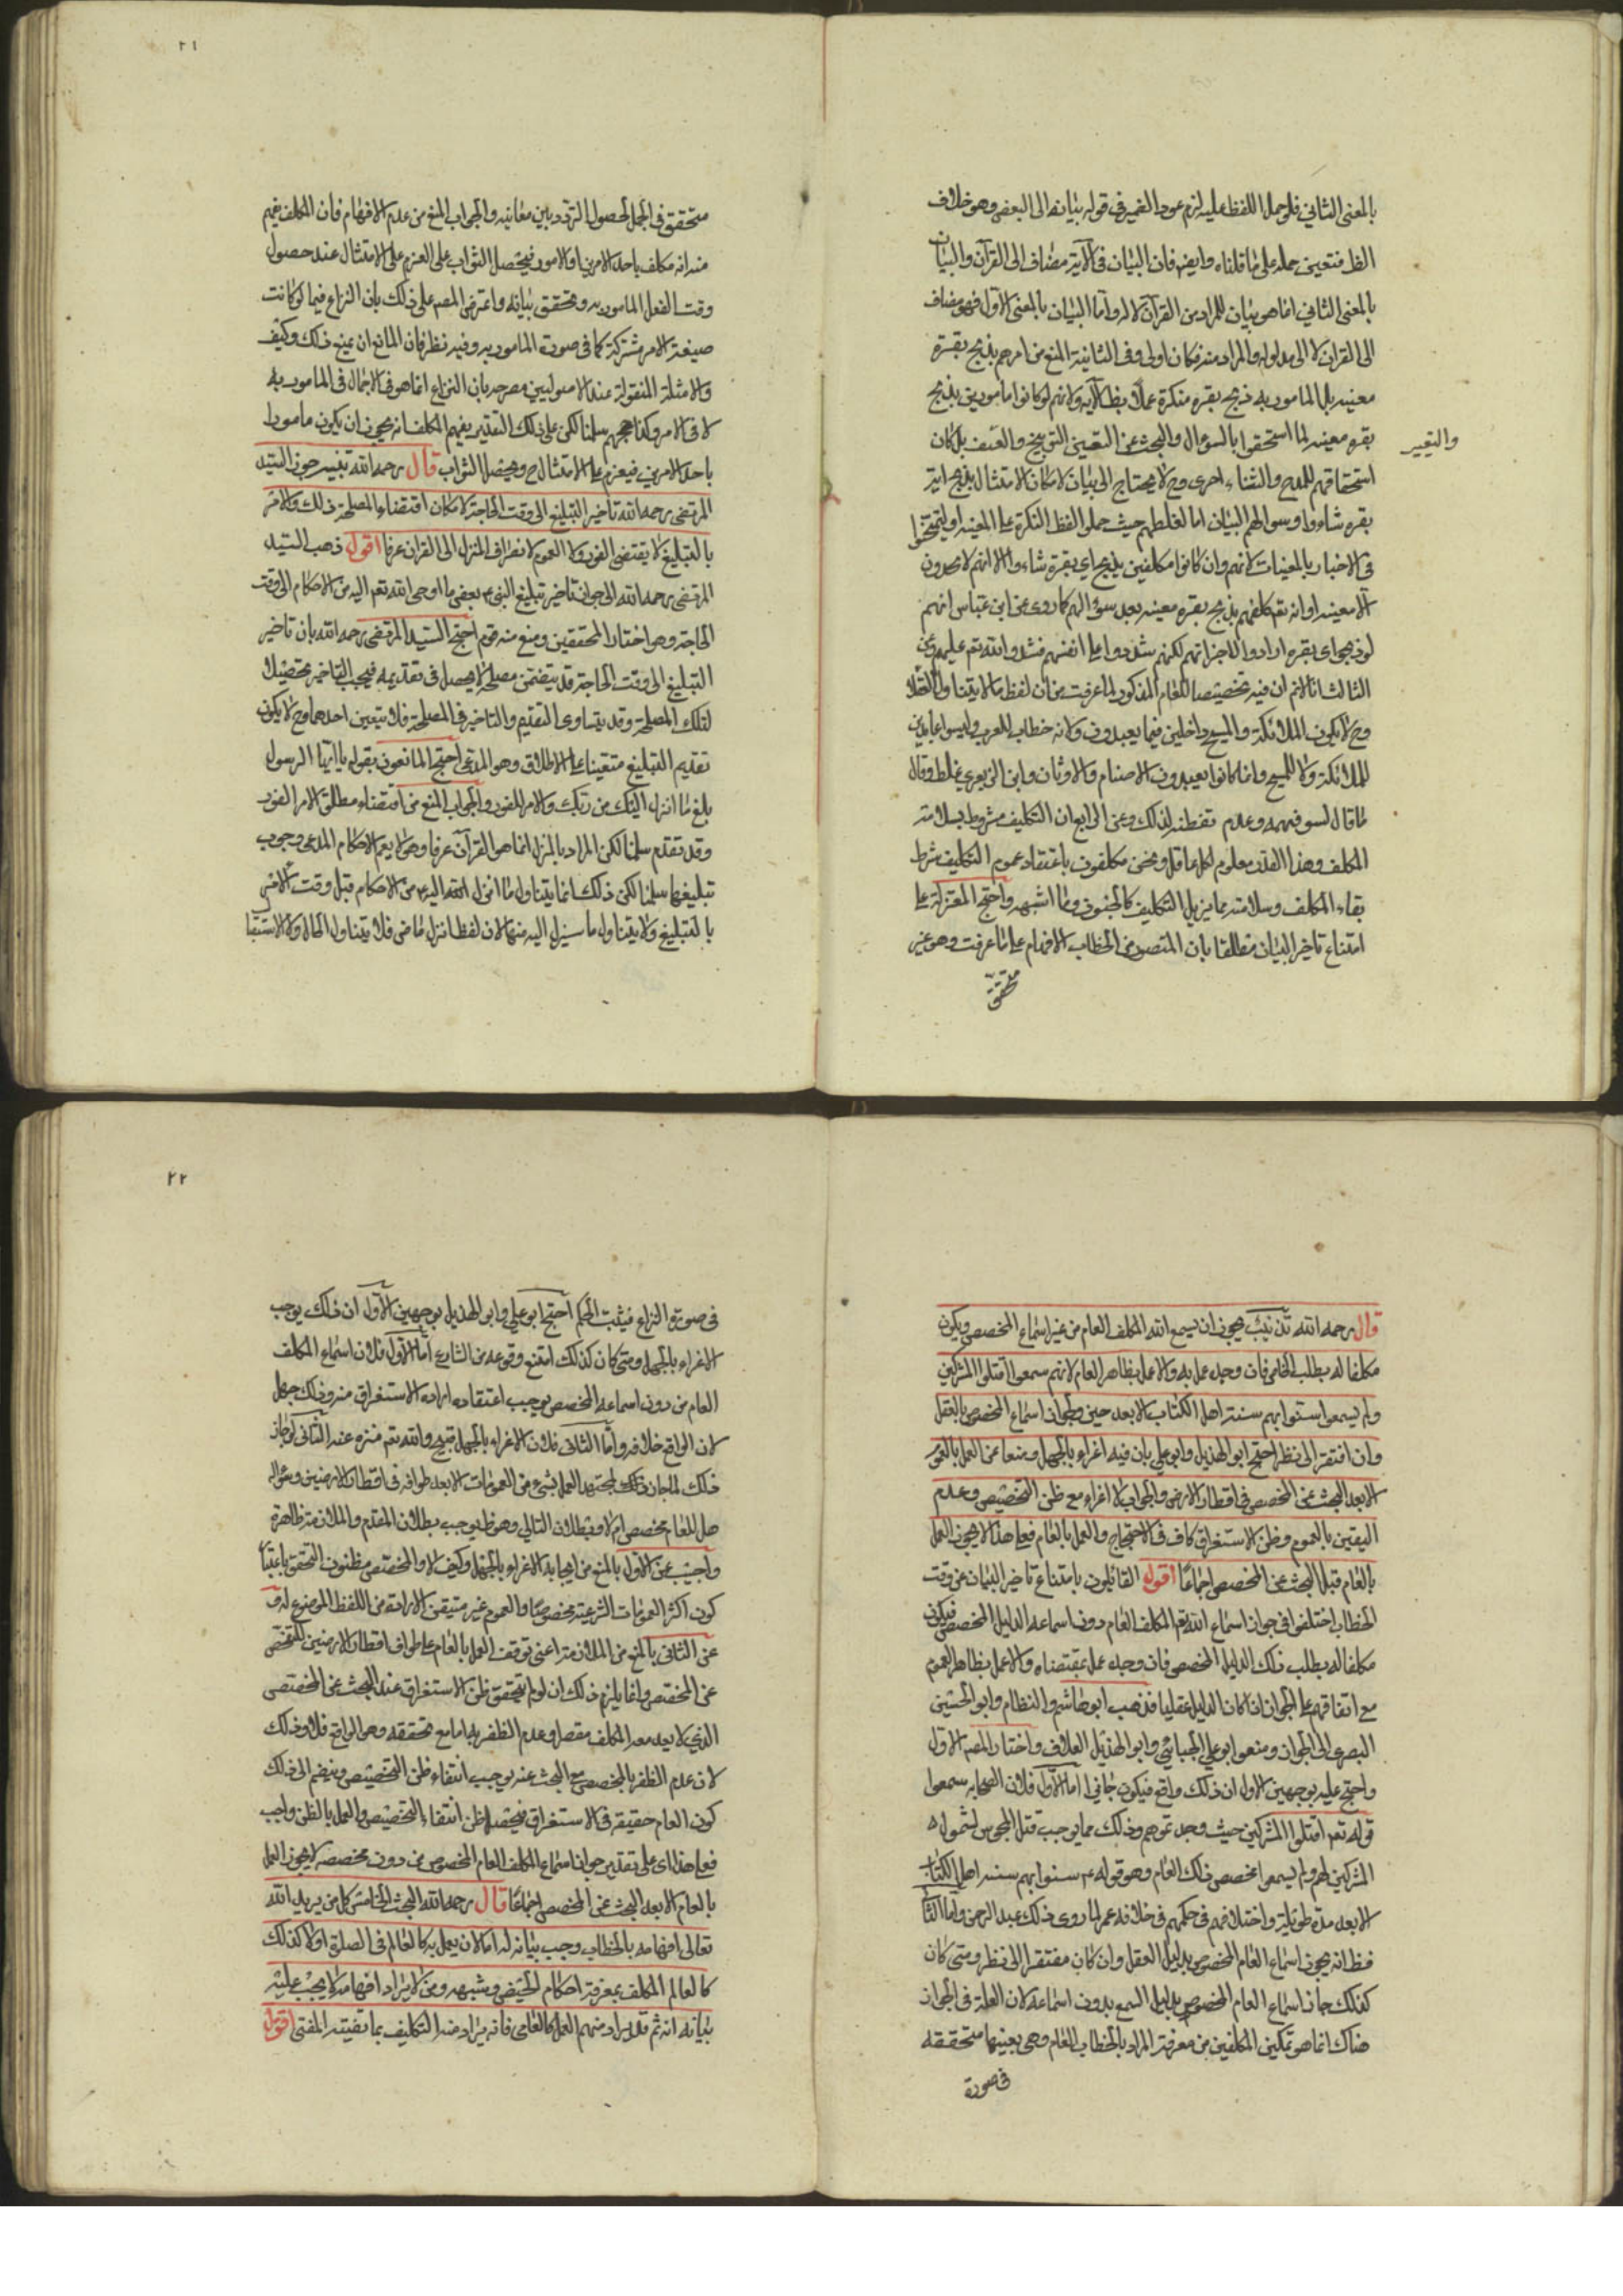 بالمعنى الثاني فلو حمل اللفظ عليه لزم عود الضمير في قوله بيانه الى البعض وهو خلاف
الظ فتعين حمله على ما قلناه وايض فان البيان في الآية مضاف الى القرآن والبيان
بالمعنى الثاني انما هو بيان للمراد من القرآن لا له واما البيان بالمعنى الاول فهو مضاف
الى القران لا الى مدلوله والمراد منه فكان اولى وفي الثانية المنع من امرهم بذبح بقرة
معينه بل المامور به ذبح بقره منكرة عملا بظ الآيه ولانهم لو كانوا مامورين بذبح
بقره معينه لما استحقوا بالسوال والبحث عن التعيين التوبيخ والعنف بل كان
والتعيير
استحقاقهم للمدح والثناء احرى وح لا يحتاج الى بيان لامكان الامتثال بذبح اية
بقره شاءوا وسوالهم البيان اما لغلطهم حيث حملوا لفظ النكرة على المعينه او
في الاخبار بالمعينات لانهم وان كانوا مكلفين بذبح اي بقرة شاءوا الا انهم لا
الا معينه او انه تع كلفهم بذبح بقره معينه بعد سؤالهم كما روى عن ابن عباس انهم
لو ذبحوا اى بقره ارادوا لاجزاتهم لكنهم شددوا على انفسهم فشدد الله تع عليهم وعن
الثالث انا لانم ان فيه تخصيصا للعام المذكور لما عرفت من ان لفظ ما لا يتناول العقلا
وح لا يكون الملائكة والمسيح داخلين فيما يعبدون ولانه خطاب للعرب وليسوا عابدين
للملائكة ولا للمسيح وانما كانوا يعبدون الاصنام والاوثان وابن الزبعرى غلط وقال
ما قال لسو فهمه وعدم تفطنه لذلك وعن الرابع ان التكليف مشروط بسلامة
المكلف وهذا القدر معلوم لكل عاقل ونحن مكلفون باعتقاد عموم التكليف بشرط
بقاء المكلف وسلامته مما يزيل التكليف كالجنون وما اشبهه واحتج المعتزلة على
امتناع تاخير البيان مطلقا بان المقصود من الخطاب الافهام على ما عرفت وهو غير
متحقق
٢١
متحقق في المجمل لحصول التردد بين معانيه والجواب المنع من عدم الافهام فان المكلف يفهم
منه انه مكلف باحد الامرين او الامور فيحصل الثواب على العزم على الامتثال عند حصول
وقت الفعل المامور به وتحقق بيانه واعترض المصر على ذلك بان النزاع فيما لو كانت
صيغة الامر مشتركة كما في صورة المامور به وفيه نظر فان المانع ان يمنع ذلك وكيف
والامثلة المنقولة عند الاصوليين مصرحه بان النزاع انما هو في الاجمال في المامور به
لا في الامر وكذا حججهم سلمنا لكن على ذلك التقدير يفهم المكلف انه يجوز ان يكون مامورا
باحد الامرين فيعزم على الامتثال ح ويحصل الثواب قال رحمه الله تنبيه جوز السيد
المرتضى رحمه الله تاخير التبليغ الى وقت الحاجة لامكان اقتضاء المصلحة ذلك والامر
بالتبليغ لا يقتضى الفور ولا العموم لانصراف المنزل الى القران عرفا اقول ذهب السيد
المرتضى رحمه الله الى جواز تاخير تبليغ النبى ع بعض ما اوحى الله تع اليه من الاحكام الى وقت
الحاجة وهو اختار المحققين ومنع منه قوم احتج السيد المرتضى رحمه الله بان تاخير
التبليغ الى وقت الحاجة قد يتضمن مصلحة لا يحصل في تقديمه فيجب التاخير تحصيلا
لتلك المصلحة وقد يتساوى التقديم والتاخير في المصلحة فلا يتعين احدهما وح لا يكون
تقديم التبليغ متعينا على الاطلاق وهو المدعى احتج المانعون بقوله يا ايها الرسول
بلغ ما انزل اليك من ربك والامر للفور والجواب المنع من اقتضاء مطلق الامر الفور
وقد تقدم سلمنا لكن المراد بالمنزل انما هو القرآن عرفا وهو لا يعم الاحكام المدعى وجوب
تبليغها سلمنا لكن ذلك انما يتناول ما انزل الله اليه من الاحكام قبل وقت الامر
بالتبليغ ولا يتناول ما سينزل اليه منها لان لفظ انزل ماض فلا يتناول الحال ولا الاستقبا
قال رحمه الله تذنيب يجوز ان يسمع الله المكلف العام من غير اسماع المخصص ويكون
مكلفا له بطلب الخاص فان وجد عمل به والا عمل بظاهر العام لانهم سمعوا اقتلوا المشركين
ولم يسمعوا سنوا بهم سنة اهل الكتاب الا بعد حين ولجواز اسماع المخصوص بالعقل
وان افتقر الى نظر احتج ابو الهذيل وابو علي بان فيه اغراء بالجهل ومنعا عن العمل بالعموم
الا بعد البحث عن المخصص في اقطار الارض والجواب لا اغراء مع ظن التخصيص وعدم
اليقين بالعموم وظن الاستغراق كاف في الاحتجاج والعمل بالعام فعلى هذا لا يجوز العمل
بالعام قبل البحث عن المخصص اجماعا اقول القائلون بامتناع تاخير البيان عن وقت
الخطاب اختلفوا في جواز اسماع الله تع المكلف العام دون اسماعه الدليل المخصص فيكون
مكلفا له بطلب ذلك الدليل المخصص فان وجد عمل بمقتضاه والا عمل بظاهر العموم
مع اتفاقهم على الجواز اذا كان الدليل عقليا فذهب ابو هاشم والنظام وابو الحسين
البصرى الى الجواز ومنعه ابو علي الجبائي وابو الهذيل العلاف واختار المصر الاول
واحتج عليه بوجهين الاول ان ذلك واقع فيكون جائزا اما الاول فلان الصحابه سمعوا
قوله تعه اقتلوا المشركين حيث وجدتموهم وذلك مما يوجب قتل المجوس لشمول
المشركين لهم ولم يسمعوا مخصص ذلك العام وهو قوله عم سنوا بهم سنة اهل الكتاب
الا بعد مدة طويلة واختلافهم في حكمهم في خلافه عمر لما روى ذلك عبد الرحمن واما الثا
فظ انه يجوز اسماع العام المخصوص بدليل العقل وان كان مفتقرا الى نظر ومتى كان
كذلك جاز اسماع العام المخصوص بدليل السمع بدون اسماعه لان العلة في الجواز
هناك انما هو تمكين المكلفين من معرفة المراد بالخطاب العام وهى بعينها متحققه
في صورة
٢٢
في صورة النزاع فيثبت الحكم احتج ابو علي وابو الهذيل بوجهين الاول ان ذلك يوجب
الاغراء بالجهل ومتى كان كذلك امتنع وقوعه من الشارع اما الاول فلان اسماع المكلف
العام من دون اسماعه المخصص يوجب اعتقاده اراده الاستغراق منه وذلك جهل
لان الواقع خلافه واما الثانى فلان الاغراء بالجهل قبيح والله تع منزه عنه الثانى لو جاز
ذلك لما جاز لمجتهد العمل بشيء من العمومات الا بعد طوافه في اقطار الارضين وسؤاله
هل للعام مخصص ام لا وبطلان التالي وهو ظ يوجب بطلان المقدم والملازمة ظاهرة
واجيب عن الاول بالمنع من ايجابه الاغراء بالجهل وكيف لا والمخصص مظنون التحقق باعتبا
كون اكثر العمومات الشرعية مخصوصا والعموم غير متيقن الارادة من اللفظ الموضوع له و
عن الثاني بالمنع من الملازمة اعنى توقف العمل بالعام على طواف اقطار الارضين للتفحص
عن المخصص وانما يلزم ذلك ان لو لم يتحقق ظن الاستغراق عند البحث عن المخصص
الذي لا يعد معه المكلف مقصرا وعدم الظفر به اما مع تحققه وهو الواقع فلا وذلك
لان عدم الظفر بالمخصص مع البحث عنه يوجب انتفاء ظن التخصيص وينضم الى ذلك
كون العام حقيقة في الاستغراق فيحصل ظن انتفاء التخصيص والعمل بالظن واجب
فعلى هذا اى على تقدير جواز اسماع المكلف العام المخصوص من دون مخصصه لا يجوز العمل
بالعام الا بعد البحث عن المخصص اجماعا قال رحمه الله البحث الخامس كل من يريد الله
تعالى افهامه بالخطاب وجب بيانه له اما لان يعمل به كالعالم في الصلوة اولا كذلك
كالعالم المكلف بمعرفة احكام الحيض وشبهه ومن لا يراد افهامه لا يجب عليه
بيانه له ثم قد يراد منهم العمل كالعامى فانه يراد منه التكليف بما تفتيه المفتى اقول